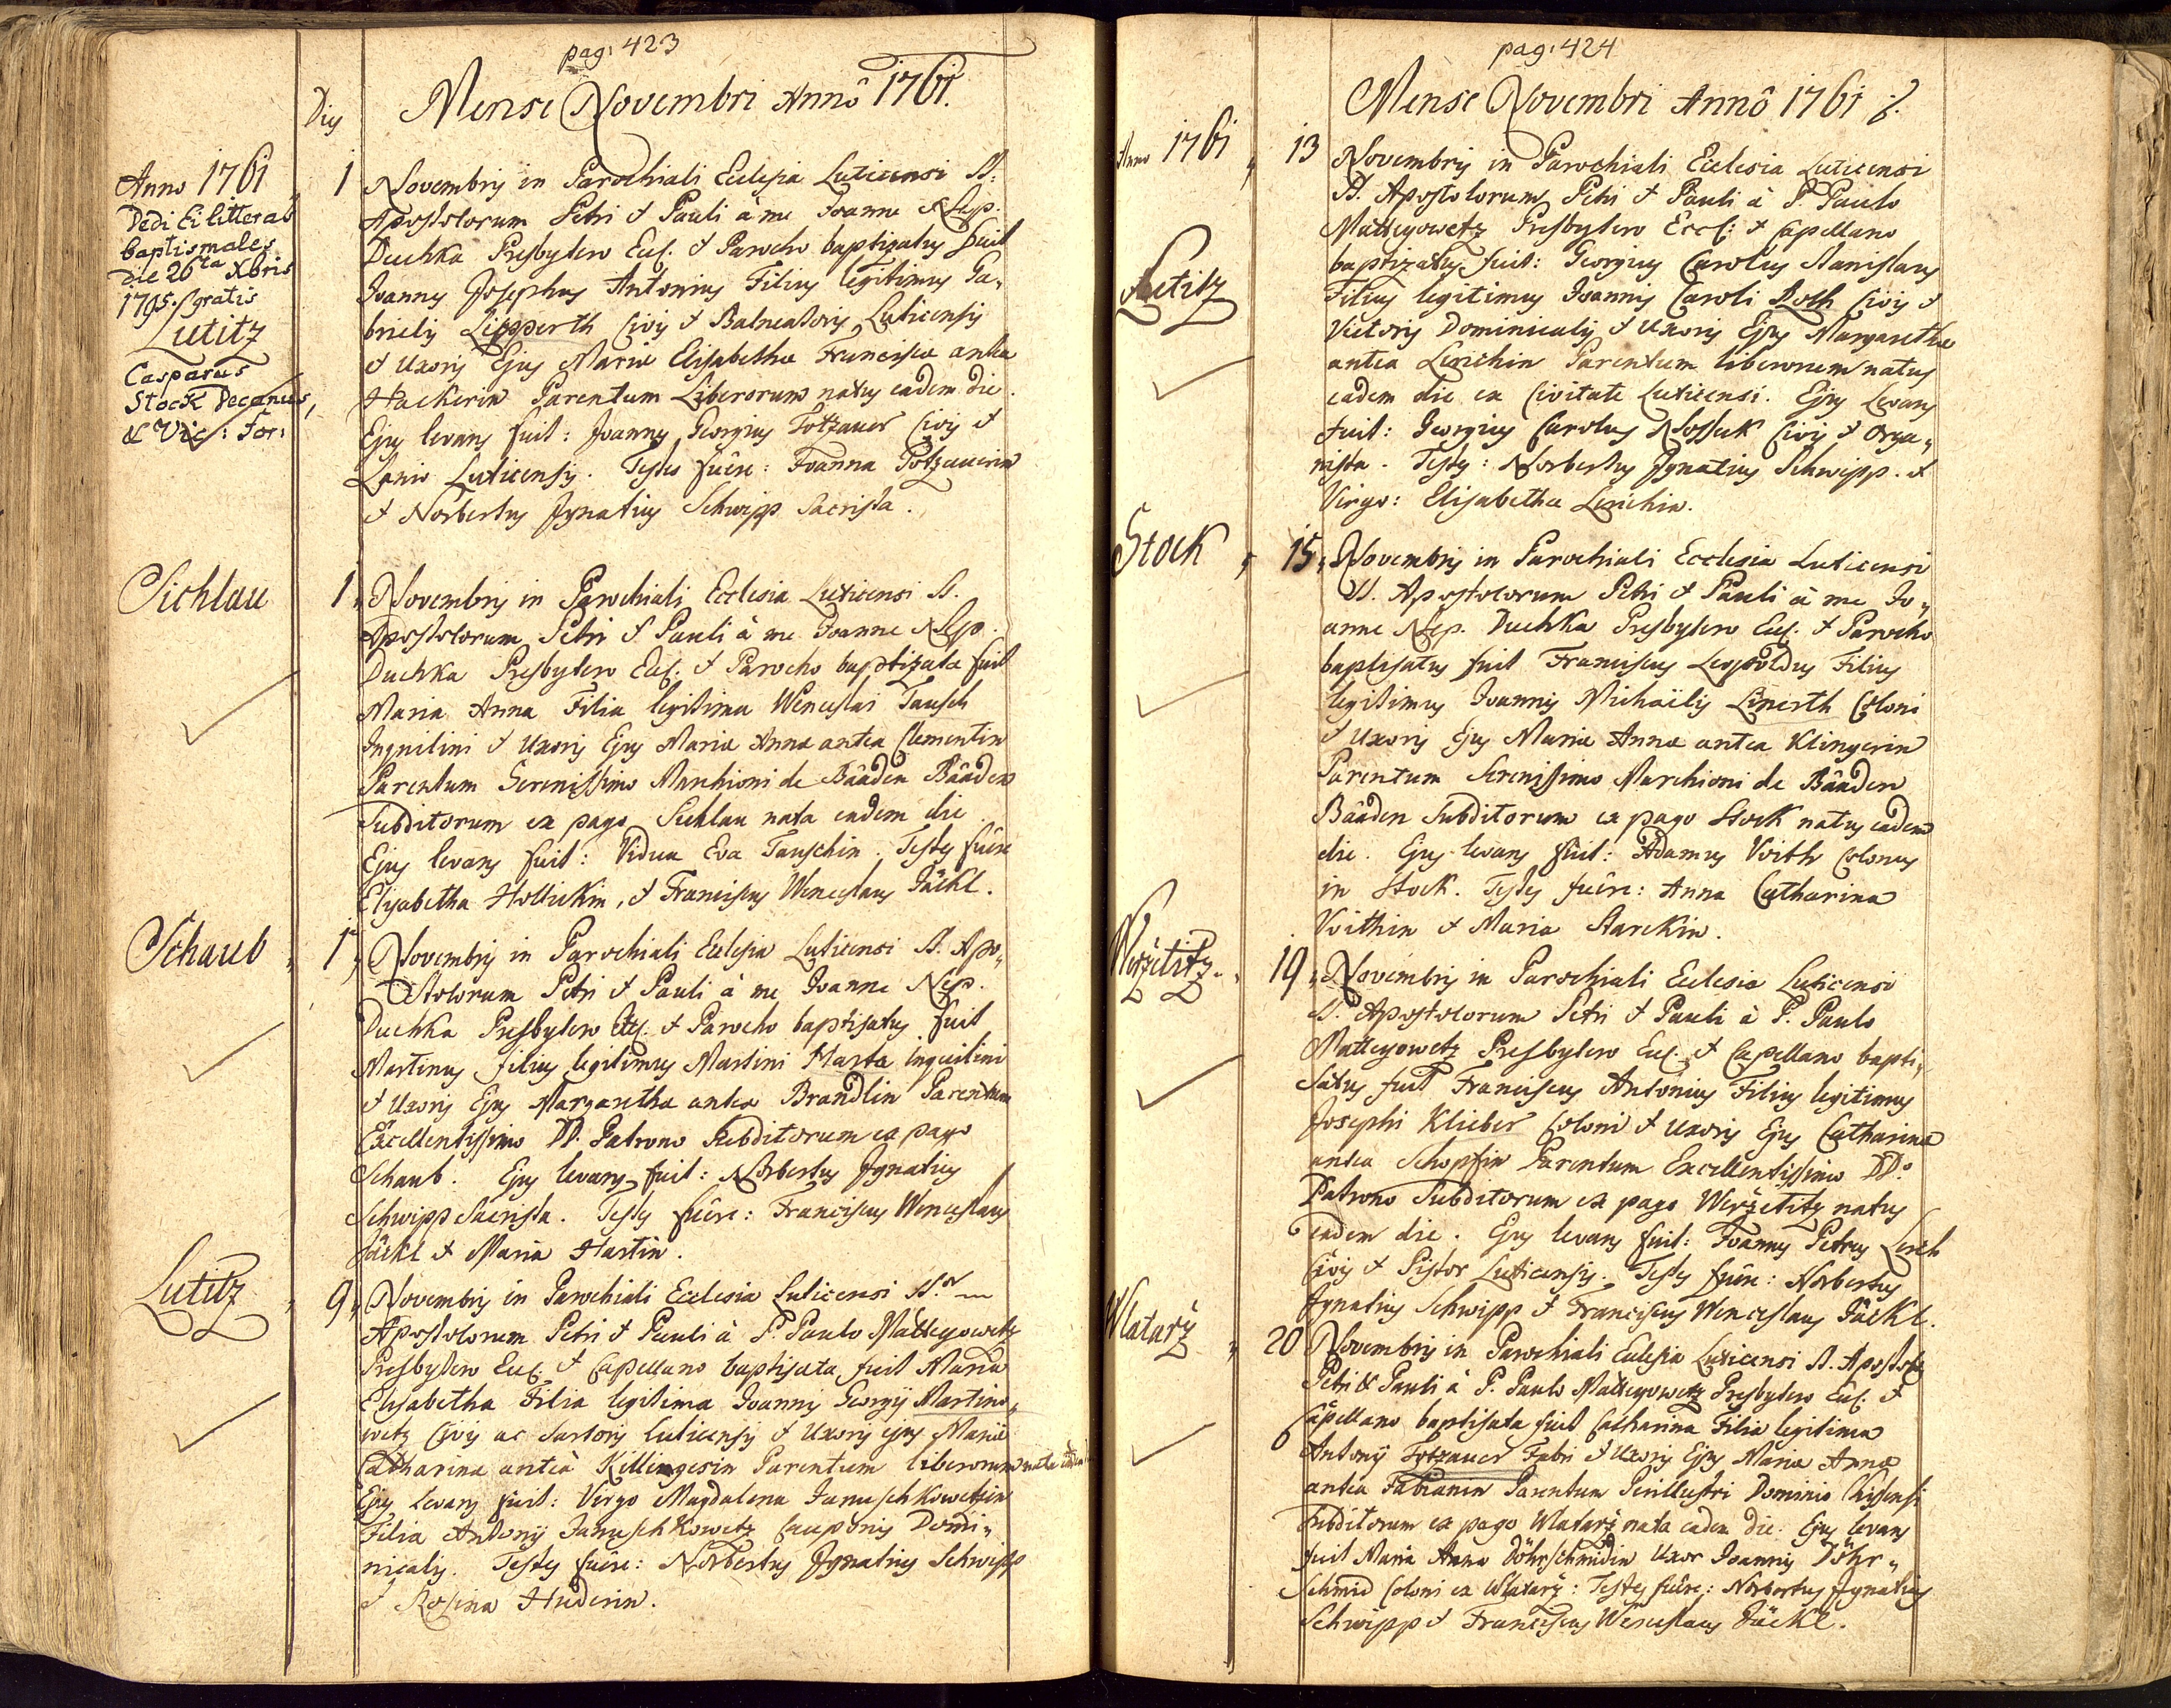 pag: 423
Mense Novembri Annô 1761.
Dies
Anno 1761
Dedi Ei litteras
baptismales
die 26ta Xbris
1795. gratis
Lutitz
Casparus
Stock Decanus,
& Vic: For:
1 Novembris in Parochiali Ecclesia Luticensi SS.
Apostolorum Petri & Pauli à me Joanne Nep.
Duchka Presbytero Eccl. & Parocho baptizatus fuit
Joannes Josephus Antonius Filius legitimus Ga„
brielis Lipperth Civis & Balneatoris Luticensis
& Uxoris Ejus Mariæ Elisabethæ Franciscæ antea
Hackerin Parentum Liberorum natus eadem die.
Ejus levans fuit: Joannes Georgius Totzauer Civis &
Lanio Luticensis. Testes fuêre: Joanna Totzauerin
& Norbertus Ignatius Schwipp Sacrista.
Sichlau
1„ Novembris in Parochiali Ecclesia Luticensi SS.
Apostolorum Petri & Pauli à me Joanne Nep.
Duchka Presbytero Eccl. & Parocho baptizata fuit
Maria Anna Filia legitima Wenceslai Tausch
Inquilini & Uxoris Ejus Mariæ Annæ antea Clementin
Parentum Serenissimo Marchioni de Bâaden Bâaden
Subditorum ex pago Sichlau nata eadem die.
Ejus levans fuit: Vidua Eva Tauschin. Testes fuêre
Elisabetha Hollickin, & Franciscus Wenceslaus Jäckl.
Schaub „
1„ Novembris in Parochiali Ecclesia Luticensi SS. Apo„
stolorum Petri & Pauli à me Joanne Nep.
Duchka Presbytero Eccl. & Parocho baptisatus fuit
Martinus filius legitimus Martini Harta Inquilini
& Uxoris Ejus Margarethæ antea Brandlin Parentum
Excellentissimo DD. Patrono Subditorum ex pago
Schaub. Ejus levans fuit: Norbertus Ignatius
Schwipp Sacrista. Testes fuêre: Franciscus Wenceslaus
Jäckl & Maria Hartin.
Lutitz „
9„ Novembris in Parochiali Ecclesia Luticensi SS.
Apostolorum Petri & Pauli à P. Paulo Matteyowetz
Presbytero Eccl. & Capellano baptisata fuit Maria
Elisabetha Filia legitima Joannis Georgij Martino„
wetz Civis ac Sartoris Luticensis & Uxoris ejus Mariæ
Catharinæ anteà Killingerin Parentum liberorum nata eadem
Ejus Levans fuit: Virgo Magdalena Januschkowetzin
Filia Antonij Januschkowetz Cauponis Domi„
nicalis. Testes fuêre: Norbertus Ignatius Schwipp
& Rosina Huderin.
pag: 424
Mense Novembri Annô 1761
Anno 1761 „
Lutitz
13 Novembris in Parochiali Ecclesia Luticensi
SS. Apostolorum Petri & Pauli à P. Paulo
Matteyowetz Presbytero Eccl: & Capellano
baptizatus fuit: Georgius Carolus Stanislaus
Filius legitimus Joannis Caroli Roth Civis &
Vietoris Dominicalis & Uxoris Ejus Margarethæ
antea Lerchin Parentum liberorum natus
eadem die ex Civitate Luticensi. Ejus Levans
fuit: Georgius Carolus Nossek Civis & Orga„
nista. Testes: Norbertus Ignatius Schwipp. &
Virgo: Elisabetha Lerchin.
Stock „
15„ Novembris in Parochiali Ecclesia Luticensi
SS. Apostolorum Petri & Pauli à me Jo„
anne Nep. Duchka Presbytero Eccl. & Parocho
baptisatus fuit Franciscus Leopoldus Filius
legitimus Joannis Michaëlis Linerth Coloni
& Uxoris Ejus Mariæ Annæ antea Klingerin
Parentum Serenissimo Marchioni de Bâaden
Bâaden Subditorum ex pago Stock natus eadem
die. Ejus levans fuit: Adamus Voith Colonus
in Stock. Testes fuêre: Anna Catharina
Voithin & Maria Starckin.
Weržetitz „
19„ Novembris in Parochiali Ecclesia Luticensi
SS. Apostolorum Petri & Pauli à P. Paulo
Matteyowetz Presbytero Eccl. & Capellano bapti„
satus fuit Franciscus Antonius Filius legitimus
Josephi Klieber Coloni & Uxoris Ejus Catharinæ
antea Schopfin Parentum Excellentissimo DD.
Patrono Subditorum ex pago Weržetitz natus
eadem die. Ejus levans fuit: Joannes Petrus Lerch
Civis & Pistor Luticensis. Testes fuêre: Norbertus
Ignatius Schwipp & Franciscus Wenceslaus Jäckl.
Wlatarž „
20 Novembris in Parochiali Ecclesia Luticensi SS. Apostol.
Petri & Pauli à P. Paulo Matteyowetz Presbytero Eccl. &
Capellano baptisata fuit Catharina Filia legitima
Antonij Totzauer Fabri & Uxoris Ejus Mariæ Annæ
antea Fabianin Parentum Perillustri Dominio Chisensi
Subditorum ex pago Wlatarž nata eadem die. Ejus levans
fuit Maria Anna Döhrschmidin Uxor Joannis Döhr„
Schmid Coloni ex Wlatarž: Testes fuêre: Norbertus Ignatius
Schwipp & Franciscus Wenceslaus Jäckl.